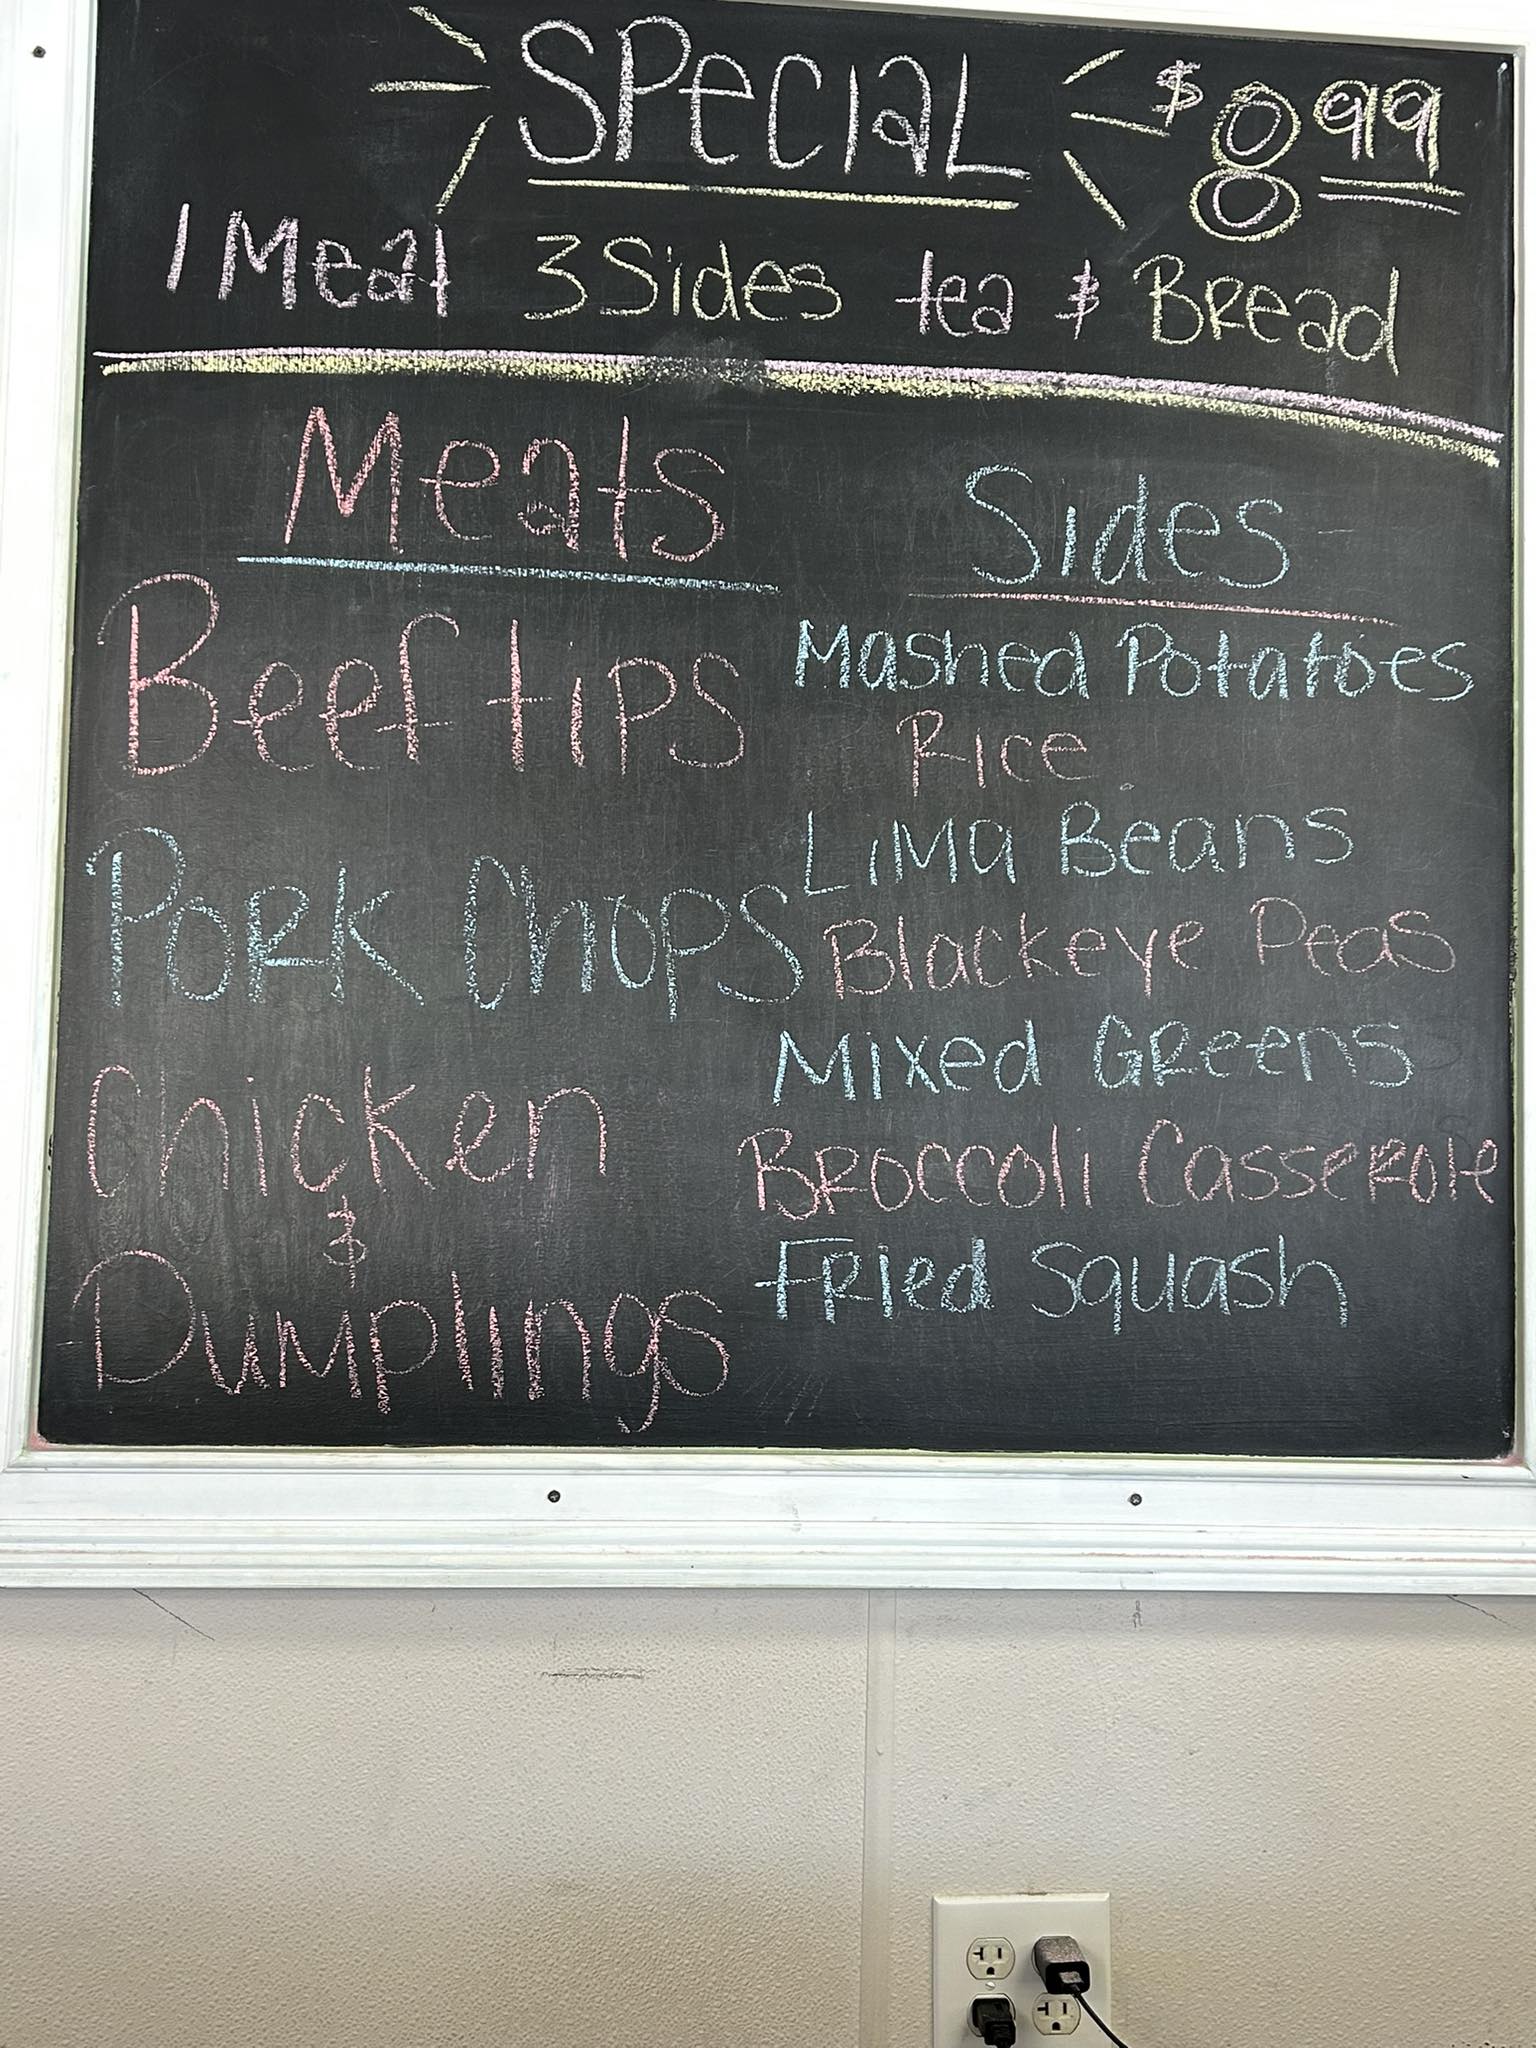 SPecial $8.99
1 Meat 3 Sides tea & Bread
Meats
Beef tips
Pork Chops
Chicken
&
Dumplings
Sides
Mashed Potatoes
Rice
Lima Beans
Blackeye Peas
Mixed Greens
Broccoli Casserole
Fried Squash